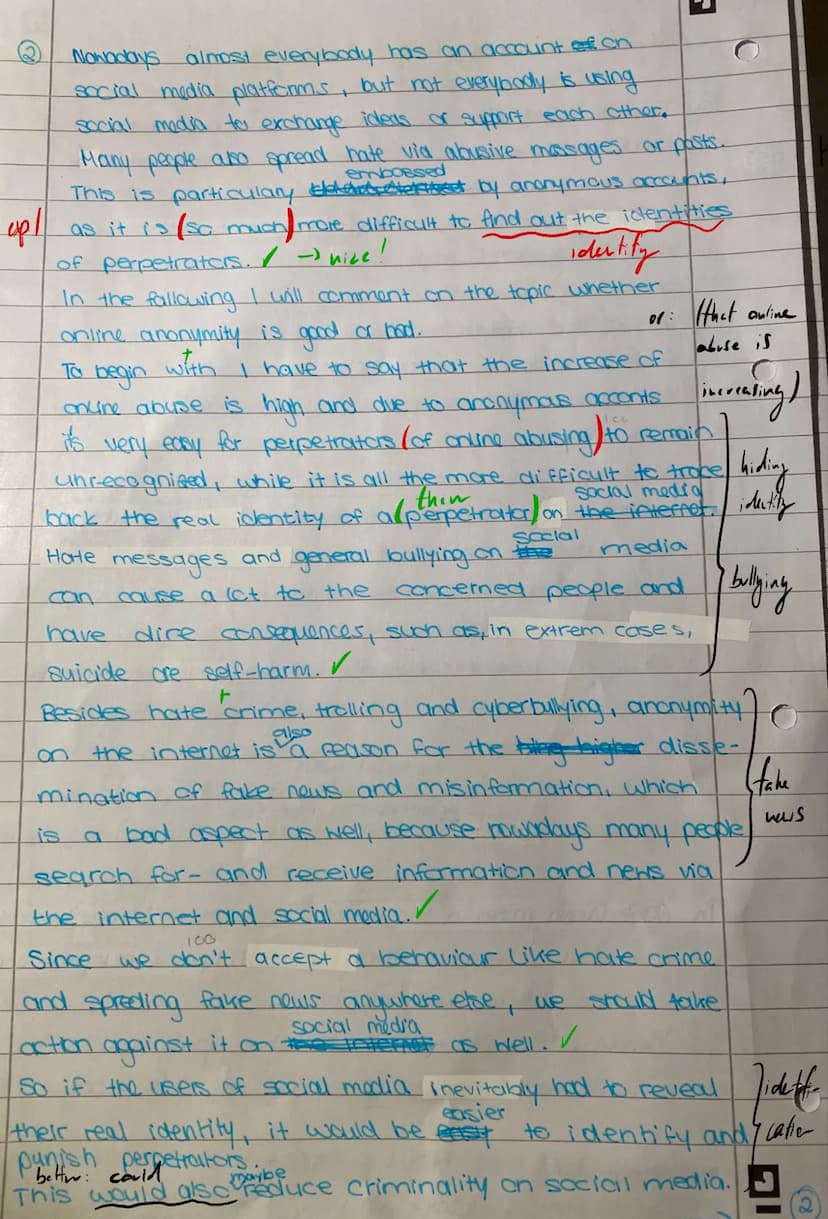 ② Nowadays almost everybody has an account of on
social media platforms, but not everybody is using
social media to exchange ideas or support each other.
Many people also spread hate via abusive messages or posts.
embossed
This is particulary by anonymous accounts,
up! as it is (so much) more difficult to find out the identities
of perpetrators. ✓ → nice! identify
In the following I will comment on the topic whether
online anonymity is good or bad.
or: (that online
abuse is
increasing)
To begin with I have to say that the increase of
online abuse is high and due to anonymous acconts
it's very easy for perpetrators (of online abusing) to remain
unrecognised, while it is all the more difficult to trace
hiding
identity
them social media
back the real identity of a (perpetrator) on the internet.
social
Hate messages and general bullying on the media
bullying
can cause a lot to the concerned people and
have dire consequences, such as, in extrem cases,
suicide ore self-harm. ✓
Besides hate crime, trolling and cyberbullying, anonymity
also
on the internet is a reason for the higher disse-
mination of fake news and misinformation, which
fake
news
is a bad aspect as well, because nowadays many people
search for- and receive information and news via
the internet and social media. ✓
Since we don't accept a behaviour like hate crime
and spreding fake news anywhere else, we should take
social media
action against it on the internet as well. ✓
So if the users of social media inevitably had to reveal
identifi-
cation
easier
their real identity, it would be easy to identify and
punish perpetraitors.
better: could maybe
This would also reduce criminality on social media.
②